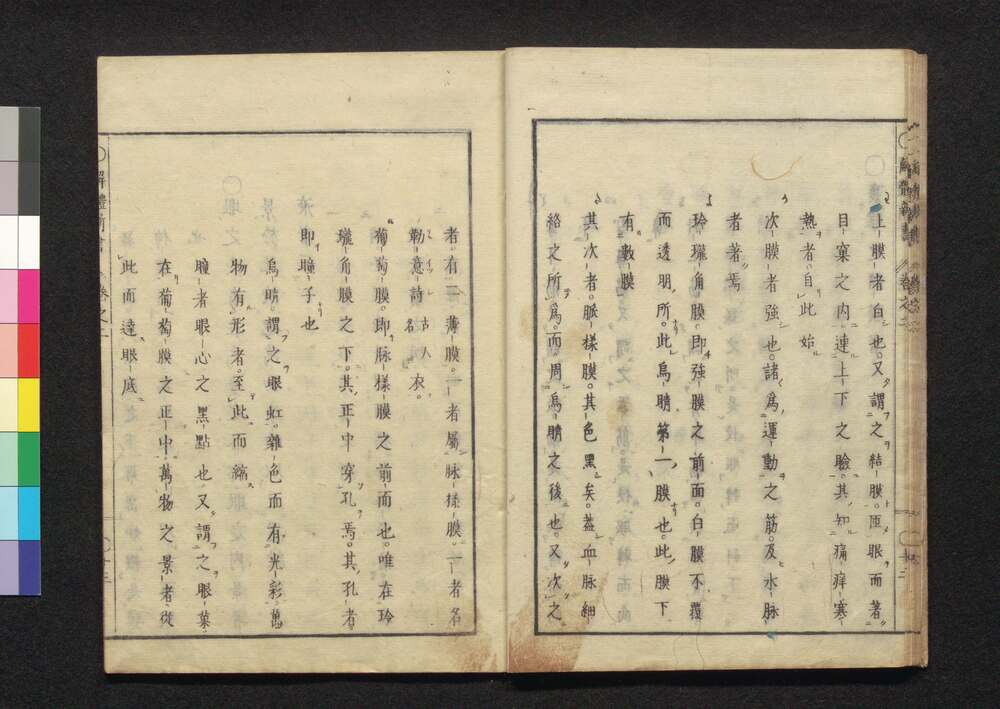 上膜者白也。又謂之結膜。匝眼而著
目窠之内。連上下之瞼。其知痛痒寒
熱者。自此始
次膜者強也。諸爲運動之筋。及水脉
者著焉
玲瓏角膜。即強膜之前面。白膜不覆
而透明所。此爲睛第一膜也。此膜下
有數膜
其次者。脈様膜。其色黑矣。蓋血脉細
絡之所爲。而周爲睛之後也。又次之
者。有二薄膜。一者屬脉様膜。一者名
勒意詩古人名衣。
葡萄膜。即脉様膜之前面也。唯在玲
瓏角膜之下。其正中穿孔焉。其孔者。
即瞳子也
爲睛。謂之眼虹。雜色而有光彩。萬
物有形者。至此而縮
瞳者眼心之黑點也又謂之眼菓。
在葡萄膜之正中。萬物之景者。從
此而達眼底
解體新書 卷之二